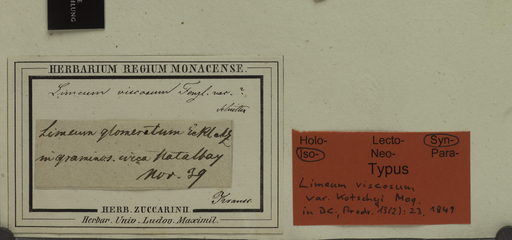 HERBARIUM REGIUM MONACENSE.
Limeum viscosum Fenzl. var. ?
Limeum glomeratum Eckl & Z
in graminos. circa Natalbay
Nov. 39
Krauss.
HERB. ZUCCARINII.
Herbar. Univ. Ludov. Maximil.
Holo- Lecto- Syn-
Iso- Neo- Para-
Typus
Limeum viscosum
var. Kotschyi Moq.
in DC., Prodr. 13(2): 23, 1849